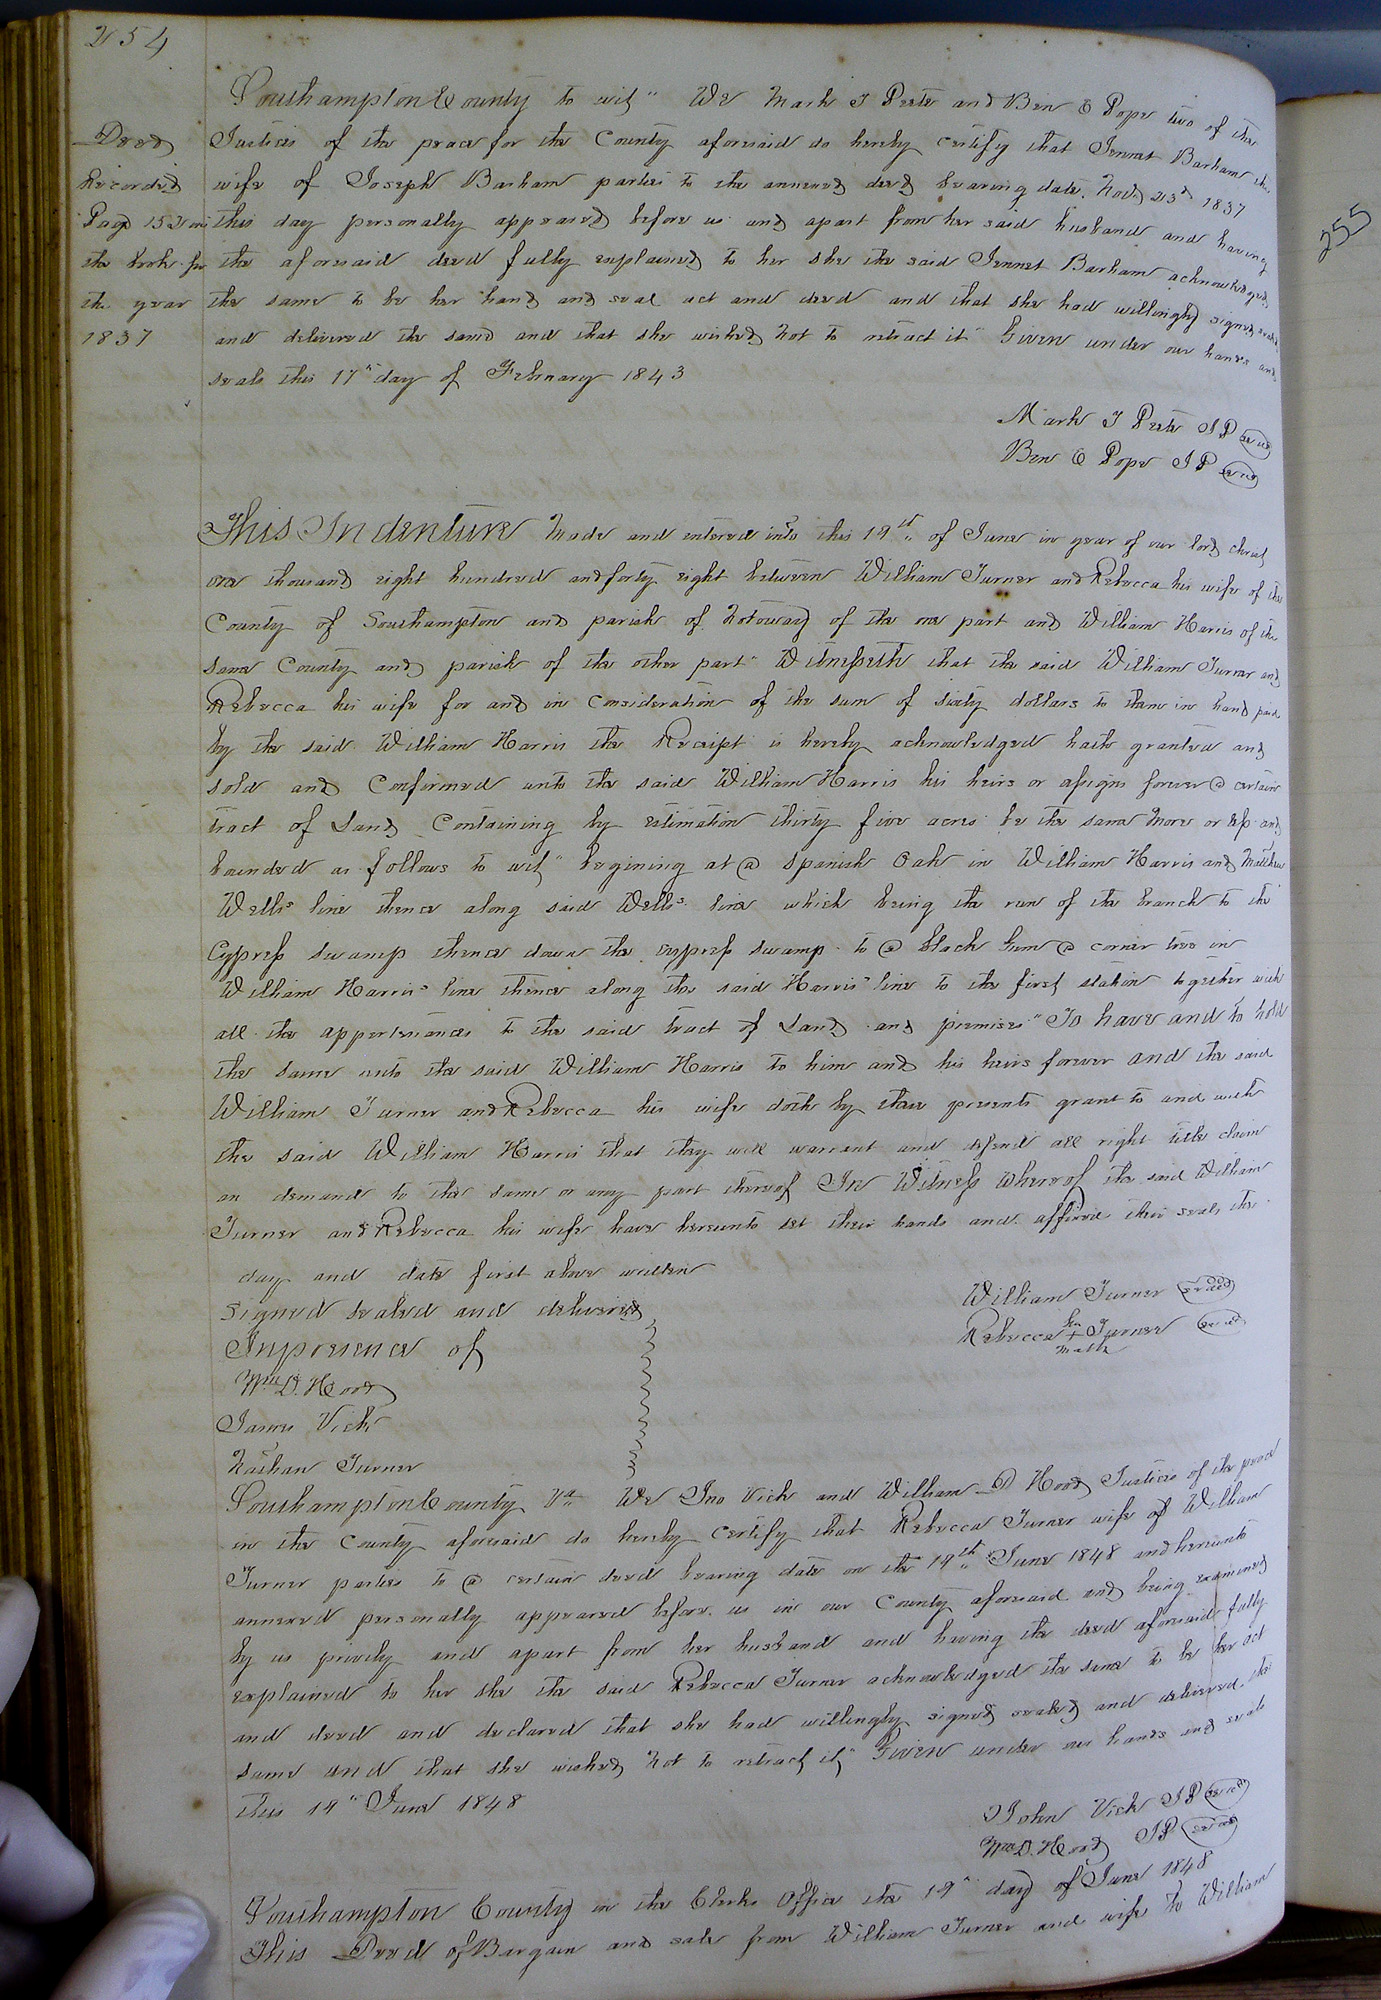 254
Southampton County to wit" We Mark J Peete and Ben E Pope two of the
Justices of the peace for the County aforesaid do hereby certify that Jennet Barham the
wife of Joseph Barham parties to the annexed deed bearing date Novd 23d 1837
this day personally appeared before us and apart from her said husband and having
the aforesaid deed fully explained to her she the said Jennet Barham acknowledged
the same to be her hand and seal act and deed and that she had willingly signed sealed
and delivered the same and that she wished not to retract it" Given under our hands and
seals this 17" day of February 1843
Deed
Recorded
Page 152 in
the book for
the year
1837
Mark J Peete JP seal
Ben E Pope JP seal
This Indenture Made and entered into this 19th of June in year of our lord christ
one thousand eight hundred and forty eight between William Turner and Rebecca his wife of the
County of Southampton and parish of Notoway of the one part and William Harris of the
same County and parish of the other part" Witnesseth that the said William Turner and
Rebecca his wife for and in consideration of the sum of sixty dollars to them in hand paid
by the said William Harris the Receipt is hereby acknowledged hath granted and
sold and Confirmed unto the said William Harris his heirs or assigns forever a certain
tract of Land Containing by estimation thirty five acres be the same more or less and
bounded as follows to wit" begining at a spanish Oak in William Harris and Matthew
Wells's line thence along said Wells's line which being the run of the branch to the
Cypress swamp thence down the cypress swamp to a black Gum a corner tree in
William Harris's line thence along the said Harris' line to the first station together with
all the appertenances to the said tract of Land and premises" To have and to hold
the same unto the said William Harris to him and his heirs forever and the said
William Turner and Rebecca his wife doth by these presents grant to and with
the said William Harris that they will warrant and defend all right title claim
an demand to the same or any part thereof In Witness whereof the said William
Turner and Rebecca his wife have hereunto set their hands and affixed their seals the
day and date first above written
Signed sealed and delivered
Inpresence of
Wm D. Hood
James Vick
Nathan Turner
William Turner seal
Rebecca her + mark Turner seal
Southampton County Va We Jno Vick and William D Hood Justices of the peace
in the County aforesaid do hereby certify that Rebecca Turner wife of William
Turner parties to a certain deed bearing date on the 19th June 1848 and hereunto
annexed personally appeared before us in our County aforesaid and being examined
by us privily and apart from her husband and having the deed aforesaid fully
explained to her she the said Rebecca Turner acknowledged the same to be her act
and deed and declared that she had willingly signed sealed and delivered the
same and that she wished not to retract it" Given under our hands and seals
this 19" June 1848
John Vick JP seal
Wm D. Hood JP seal
Southampton County in the Clerks Office the 19" day of June 1848
This Deed of Bargain and sale from William Turner and wife to William
255